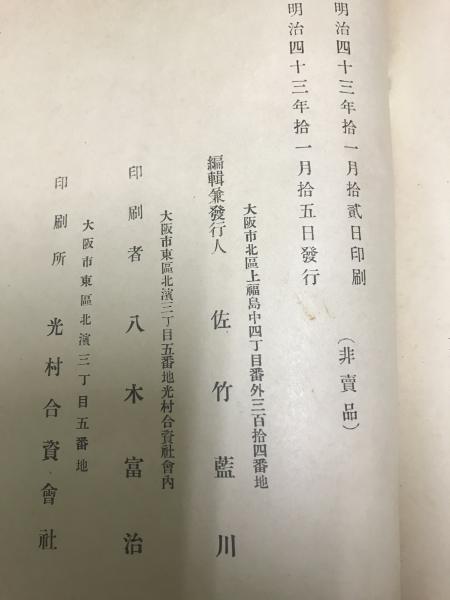 明治四十三年拾一月拾貳日印刷
(非賣品)
明治四十三年拾一月拾五日發行
大阪市北區上福島中四丁目番外三百拾四番地
編輯兼發行人 佐竹藍川
大阪市東區北濱三丁目五番地光村合資社會內
印刷者 八木富治
大阪市東區北濱三丁目五番地
印刷所 光村合資會社